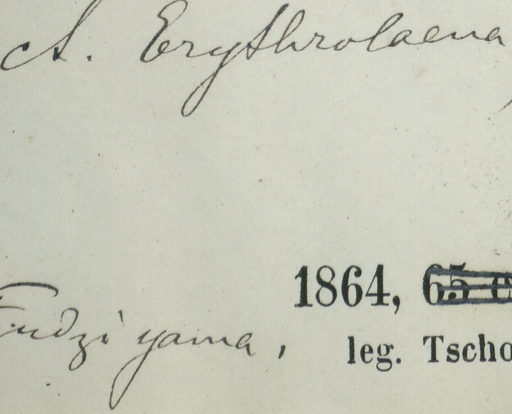 A. Erythrolaena
1864, 65 e
Fudzi yama,
leg. Tscho